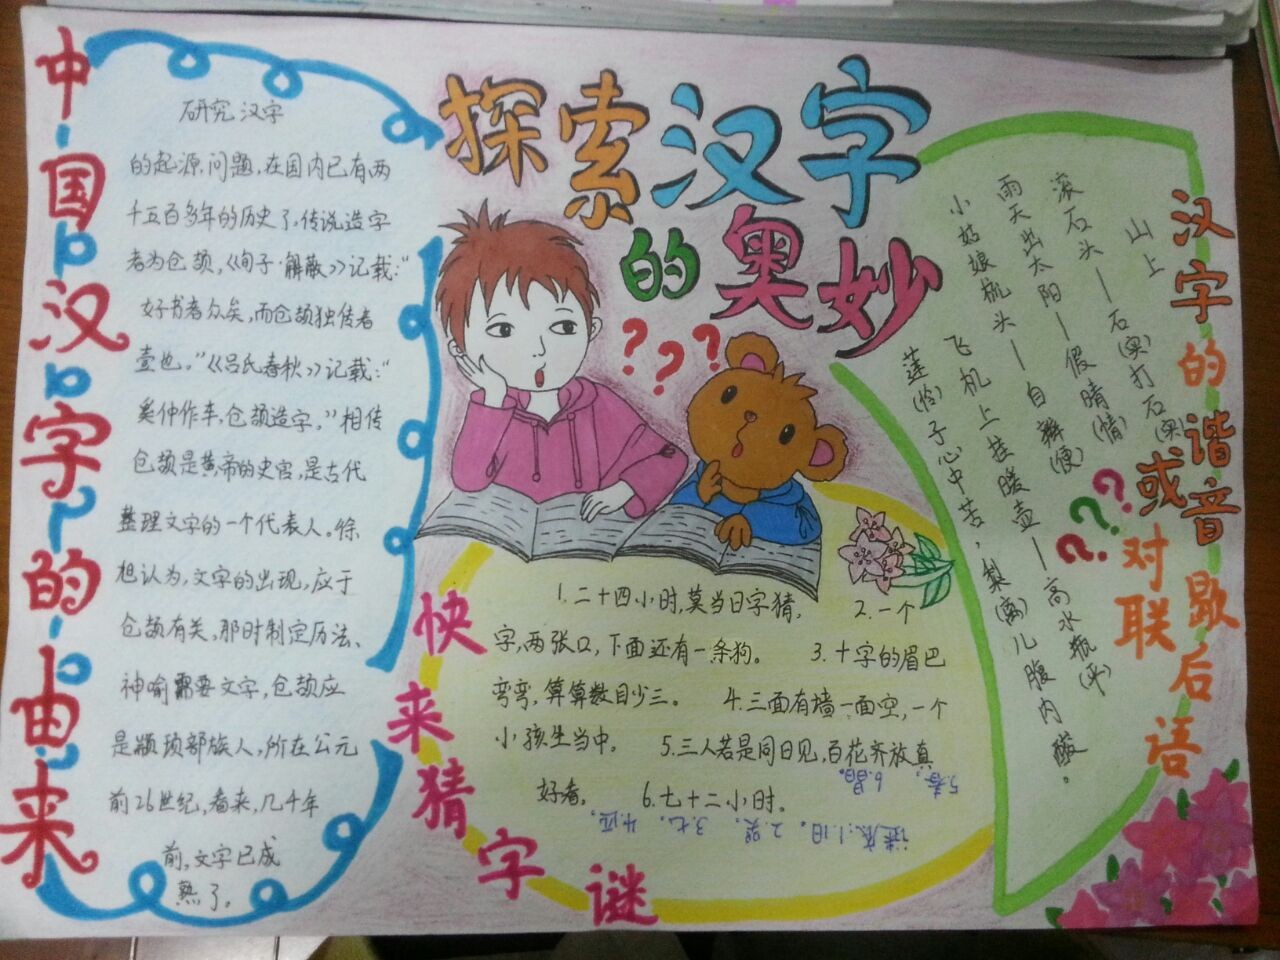 探索汉字
的奥妙
中国汉字的由来
研究汉字
的起源问题,在国内已有两
十五百多年的历史了,传说造字
者为仓颉,《荀子·解蔽》记载:“
好书者众矣,而仓颉独传者
壹也。”《吕氏春秋》记载:“
奚仲作车,仓颉造字。”相传
仓颉是黄帝的史官,是古代
整理文字的一个代表人。徐
想认为,文字的出现,应于
仓颉有关,那时制定历法、
神喻需要文字,仓颉应
是颛顼部族人,所在公元
前26世纪,看来,几千年
前,文字已成
熟了。
???
快来猜字谜
1.二十四小时,莫当日字猜, 2.一个
字,两张口,下面还有一条狗。 3.十字的眉巴
弯弯,算算数目少三。 4.三面有墙一面空,一个
小孩生当中。 5.三人若是同日见,百花齐放真
好看。 6.七十二小时。
谜底:1.旧。2.哭。3.七。4.匹。
5.春。6.晶。
汉字的谐音歇后语
或对联
???
山上
滚石头—石(实)打石(实)
雨天出太阳—假晴(情)
小姑娘梳头—自辫(便)
飞机上挂暖壶—高水瓶(平)
莲(怜)子心中苦,梨(离)儿腹内酸。